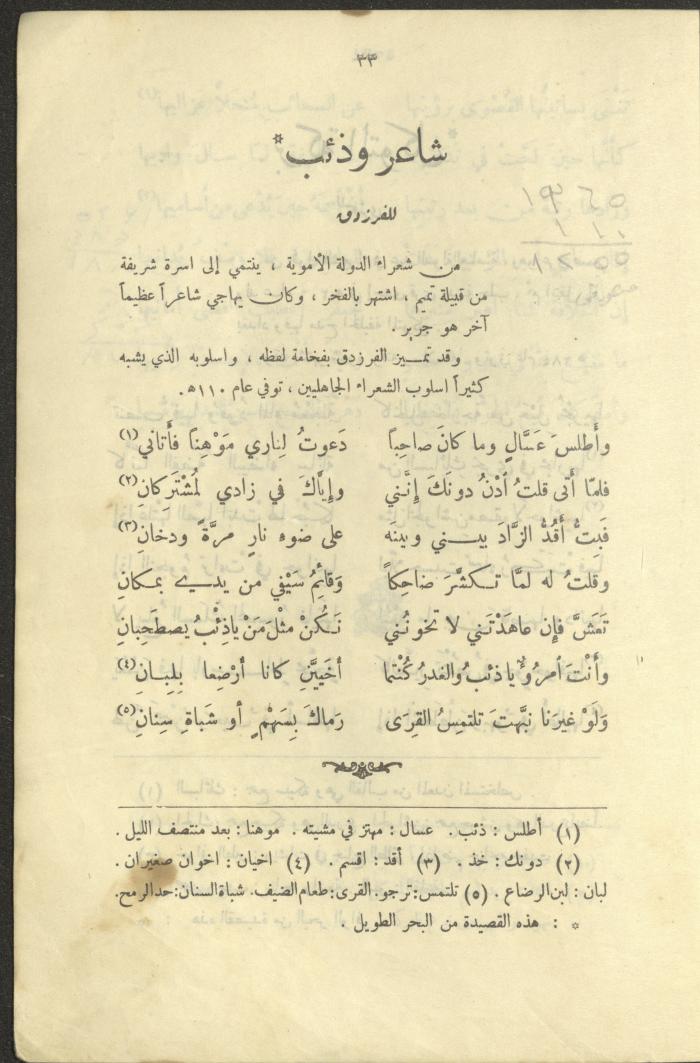 ٣٣
شاعر وذئب*
للفرزدق
من شعراء الدولة الأموية ، ينتمي إلى اسرة شريفة
من قبيلة تميم ، اشتهر بالفخر ، وكان يهاجي شاعراً عظيماً
آخر هو جرير .
وقد تميز الفرزدق بفخامة لفظه ، واسلوبه الذي يشبه
كثيراً اسلوب الشعراء الجاهليين ، توفي عام ١١٠ ه‍ .
وأَطلسَ عَسَّالٍ وما كانَ صاحِباً دَعوتُ لِناري مَوْهِناً فأَتاني(١)
فلمّا أَتى قلتُ اُدْنُ دونَكَ إِنَّني وإِيَّاكَ في زادي لَمُشْتَرِكانِ(٢)
فَبِتُّ أَقُدُّ الزَّادَ بيني وبينَه على ضوءِ نارٍ مرَّةً ودخانِ(٣)
وقلتُ له لمَّا تكشَّرَ ضاحِكاً وَقائِمُ سَيْفي من يدي بمكانِ
تَعَشَّ فإِن عاهَدْتَني لا تخونُني نَكُنْ مثْلَ مَنْ ياذِئْبُ يصطَحِبانِ
وأَنْتَ اُمرُؤٌ ياذئبُ والغدرُ كُنْتُما أُخَيَّيْنِ كانا أُرْضِعا بِلِبانِ(٤)
وَلَوْ غيرَنا نبَّهتَ تلتمِسُ القِرَى رَماكَ بِسَهْمٍ أو شَباةِ سِنانِ(٥)
(١) أطلس : ذئب . عسال : مهتز في مشيته . موهنا : بعد منتصف الليل .
(٢) دونك : خذ . (٣) أقد : اقسم . (٤) اخيان : اخوان صغيران .
لبان : لبن الرضاع . (٥) تلتمس : ترجو . القرى : طعام الضيف . شباة السنان : حد الرمح .
* : هذه القصيدة من البحر الطويل .